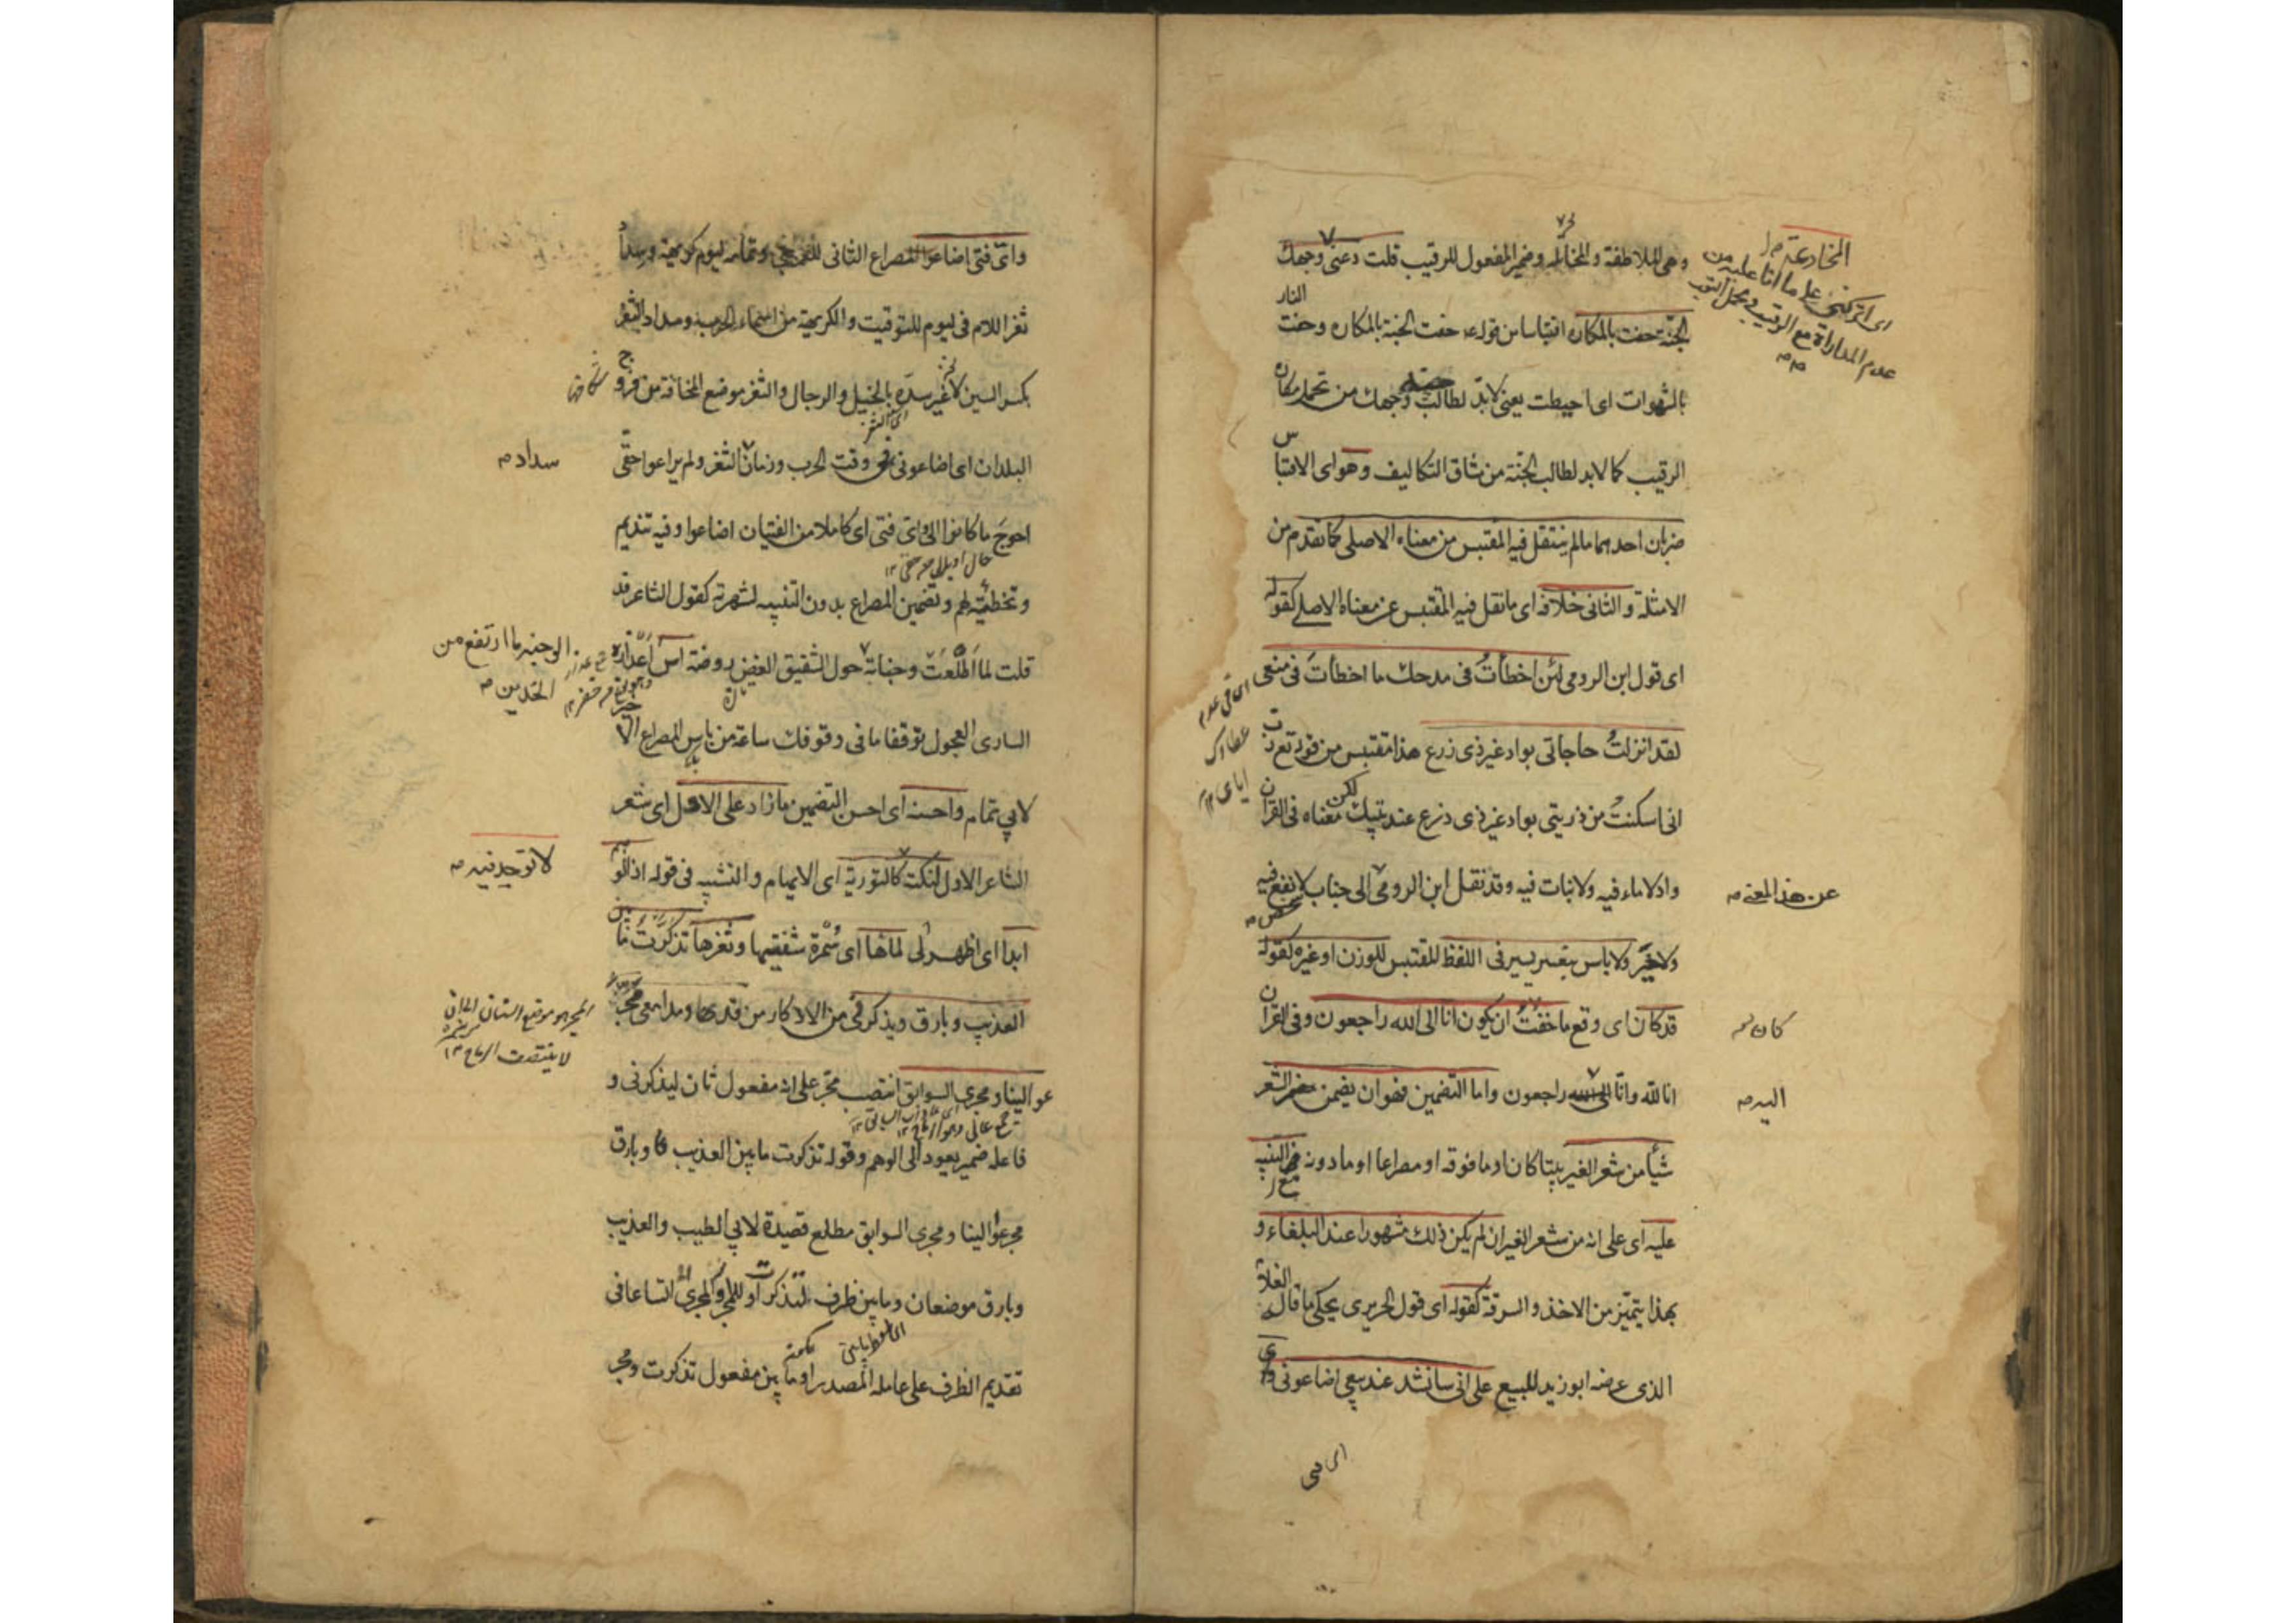 المخادعة
اى اتركنى على ما انا عليه من
عدم المداراة مع الرقيب وتحمل
وهى الملاطفة والمخاتلة وضمير المفعول للرقيب قلت دعنى وجهك
الجنة حفت بالمكاره اقتباسا من قوله حفت الجنة بالمكاره وحفت النار
بالشهوات اى احيطت يعنى لابد لطالب جنة وجهك من تحمل مكاره
الرقيب كما لابد لطالب الجنة من مشاق التكاليف وهو اى الاقتباس
ضربان احدهما ما لم ينتقل فيه المقتبس من معناه الاصلى كما تقدم من
الامثلة والثانى خلافه اى ما نقل فيه المقتبس عن معناه الاصلى كقوله
اى قول ابن الرومى لئن اخطأت فى مدحك ما اخطأت فى منعى
اى فى عدم
عطاءك
اياى ١٢
لقد انزلت حاجاتى بواد غير ذى زرع هذا مقتبس من قوله تع رب
انى اسكنت من ذريتى بواد غير ذى زرع عند بيتك لكن معناه فى القران
واد لا ماء فيه ولا نبات فيه وقد نقل ابن الرومى الى جناب لا نفع فيه
عن هذا المعنى
ولا خير ولا باس بتغيير يسير فى اللفظ المقتبس للوزن او غيره كقوله
قد كان اى وقع ما خفت ان يكون انا الى الله راجعون وفى القران
كان
انا لله وانا اليه راجعون واما التضمين فهو ان يضمن الشعر
اليه
شيأ من شعر الغير بيتا كان او ما فوقه او مصراعا او ما دونه مع التنبيه
عليه اى على انه من شعر الغير ان لم يكن ذلك مشهورا عند البلغاء و
بهذا يتميز من الاخذ والسرقة كقوله اى قول الحريرى يحكى ما قاله الغلام
الذى عرضه ابو زيد للبيع على انى سانشد عند بيعى اضاعونى و
اى
واى فتى اضاعوا المصراع الثانى للعرجى وتمامه ليوم كريهة وسداد
ثغر اللام فى ليوم للتوقيت والكريهة من اسماء الحرب وسداد الثغر
بكسر السين لا غير سده بالخيل والرجال والثغر موضع المخافة من فروج
البلدان اى اضاعونى فى وقت الحرب وزمان الثغر ولم يراعوا حقى
سداد
احوج ما كانوا الى واى فتى اى كاملا من الفتيان اضاعوا وفيه تنديم
وتخطئة لهم وتضمين المصراع بدون التنبيه لشهرته كقول الشاعر قد
قلت لما اطلعت وجناته حول الشقيق الغض روضة آس اعذاره
الوجنه ما ارتفع من
الخدين
السارى العجول توقفا ما فى وقوفك ساعة من باس المصراع الاخير
لابى تمام واحسنه اى احسن التضمين ما زاد على الاصل اى شعر
الشاعر الاول لنكتة كالتورية اى الايهام والتشبيه فى قوله اذا الوهم
لا توجد فيه
ابدا اى اظهر لى لماها اى سمرة شفتيها وثغرها تذكرت ما بين
العذيب وبارق ويذكرنى من الاذكار من قدها ومدامعى مجر
المجر هو موضع
عوالينا ومجرى السوابق انتصب مجر على انه مفعول ثان ليذكرنى و
فاعله ضمير يعود الى الوهم وقوله تذكرت ما بين العذيب وبارق
مجر عوالينا ومجرى السوابق مطلع قصيدة لابى الطيب والعذيب
وبارق موضعان وما بين ظرف لتذكرت او للمجر والمجرى اتساعا فى
تقديم الظرف على عامله المصدر او ما بين مفعول تذكرت ومجر